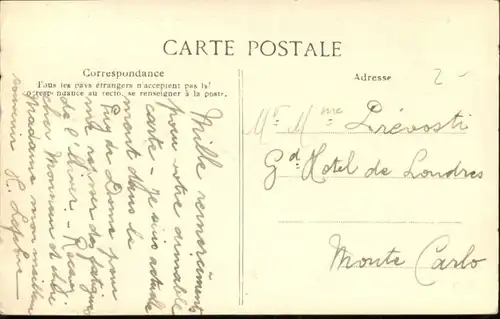 CARTE POSTALE
Correspondance
Tous les pays étrangers n'acceptent pas la
correspondance au recto, se renseigner à la poste.
Mille remerciements
pour votre aimable
carte - Je suis actuelle
ment dans le
Puy de Dôme pour
me reposer des fatigues
de l'Hiver. - Recevez
cher Monsieur et chère
Madame mon meilleur
souvenir H. Lefebvre
Adresse
2 -
Mr Mme Prévosti
Gd Hotel de Londres
Monte Carlo